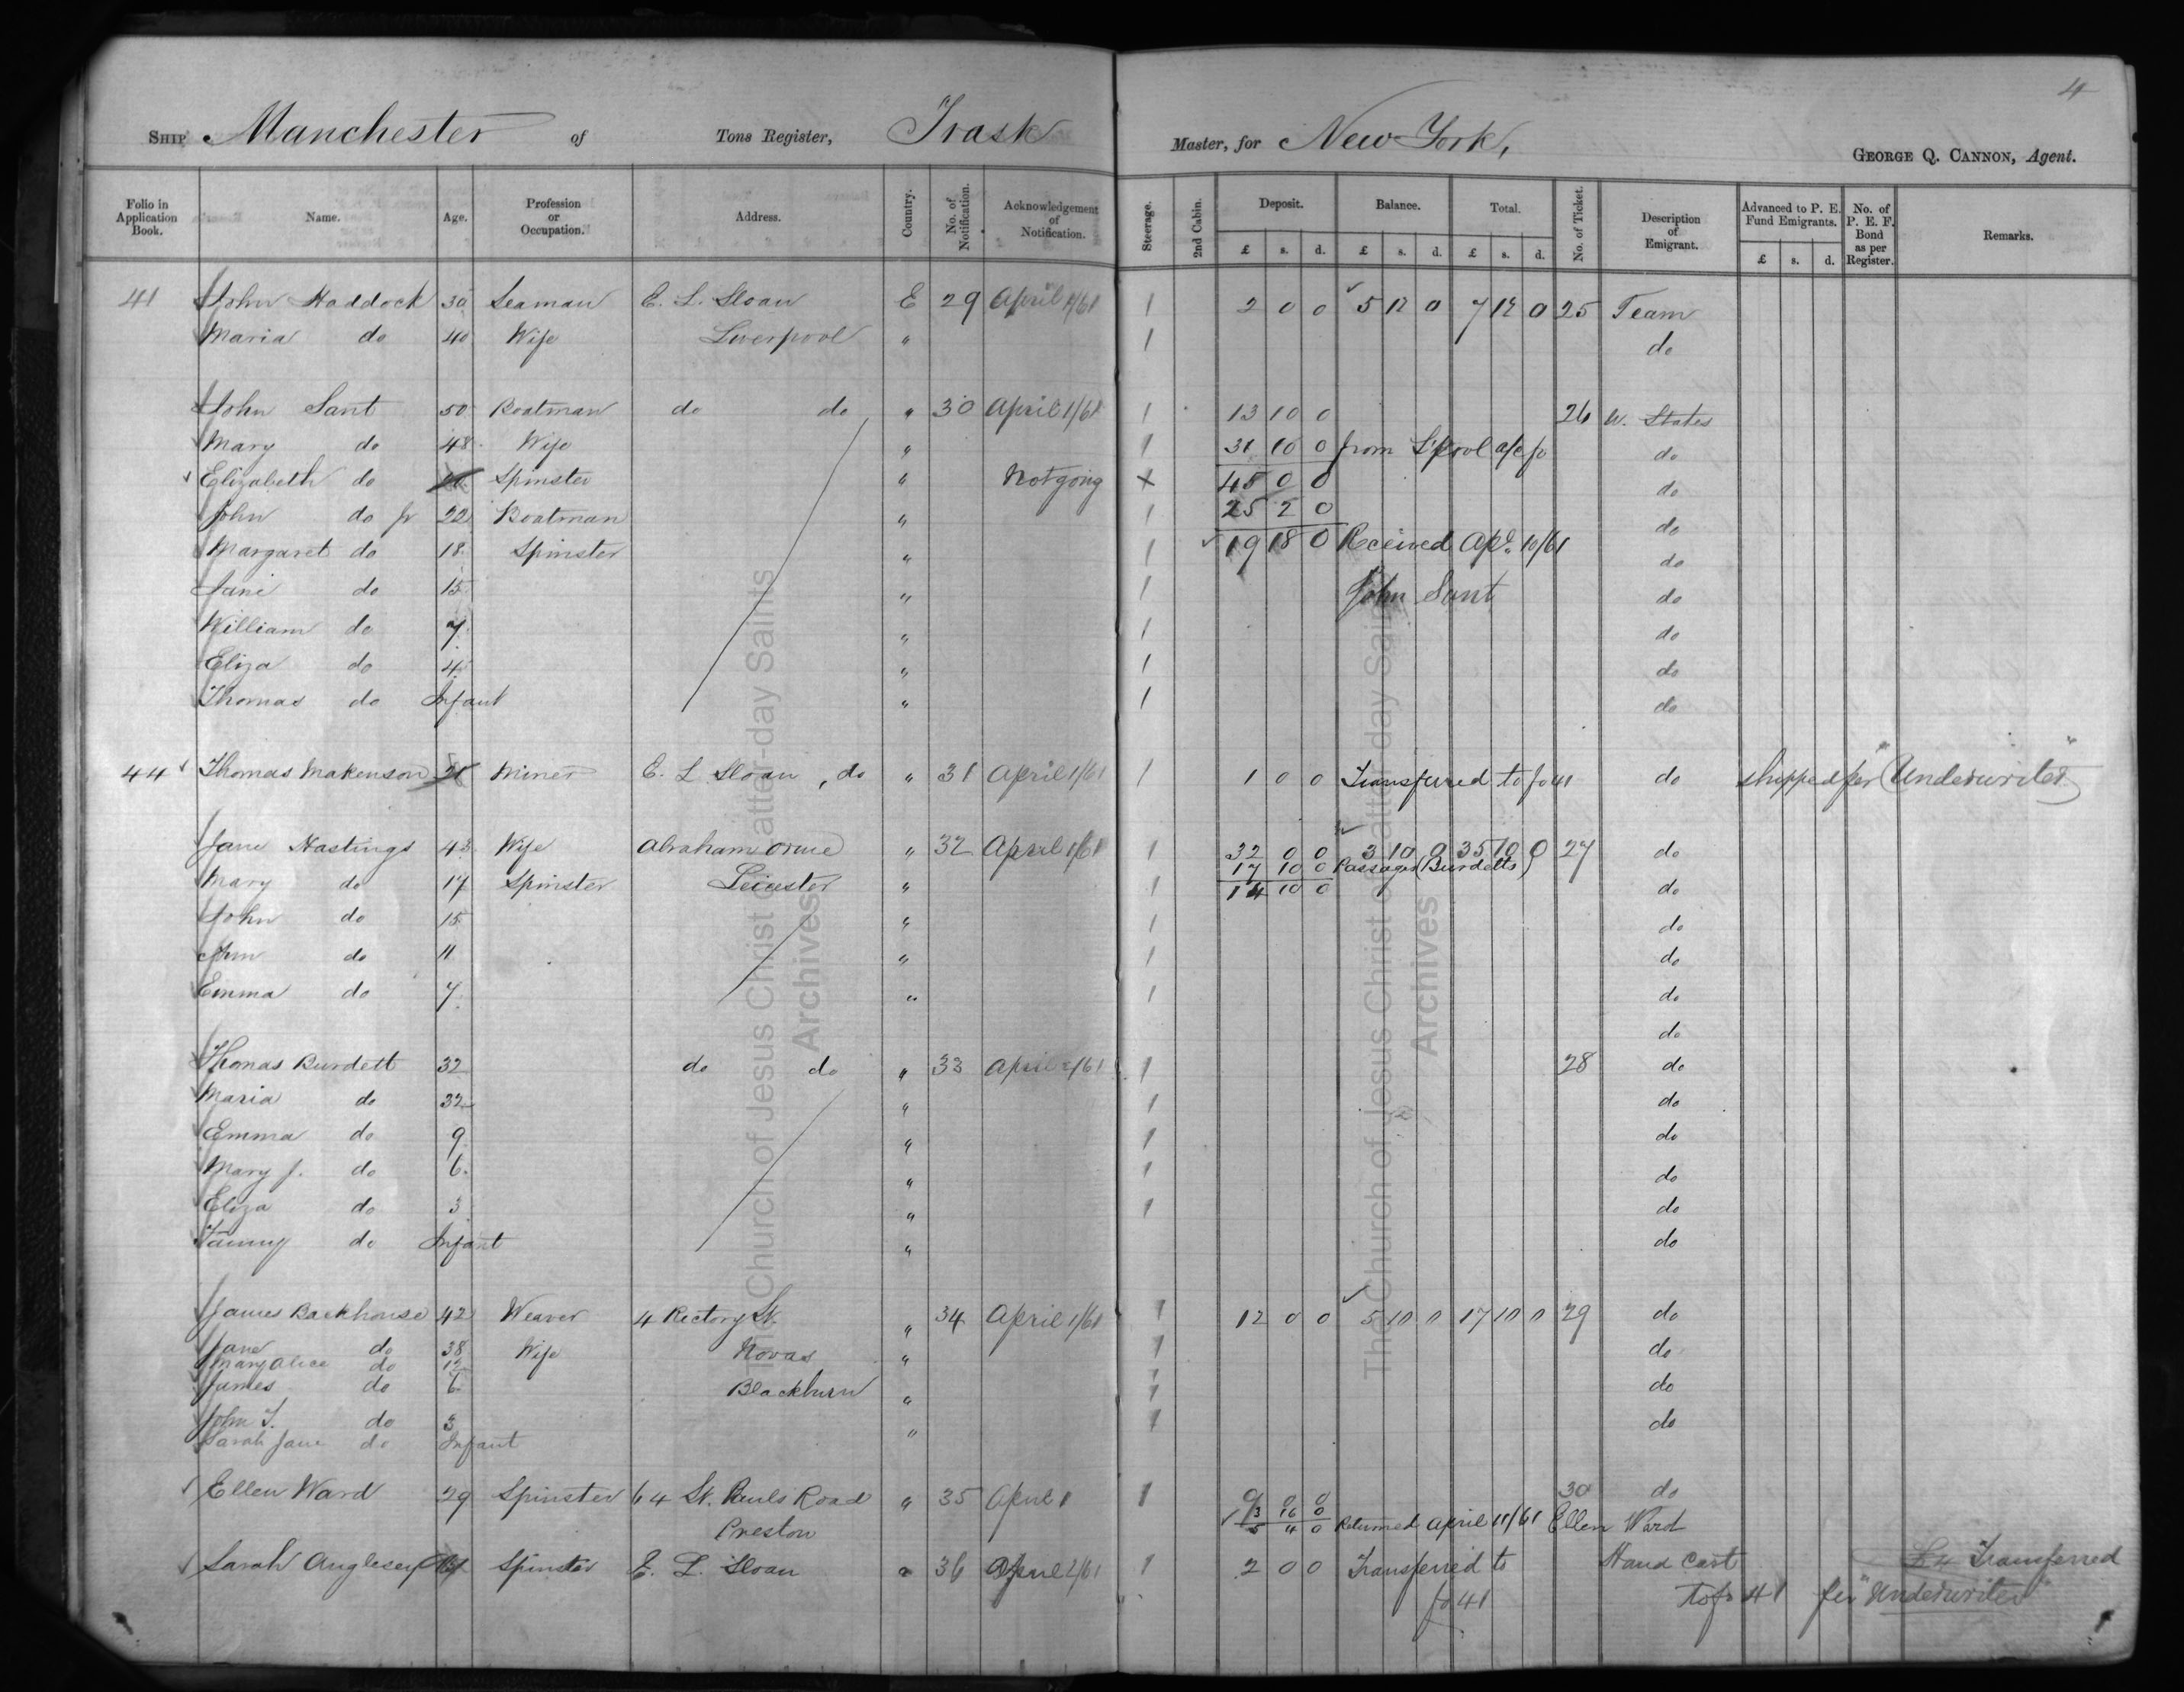 4
SHIP Manchester of Tons Register, Trask Master, for New York,
GEORGE Q. CANNON, Agent.
Folio in Application Book. Name. Age. Profession or Occupation. Address. Country. No. of Notification. Acknowledgement of Notification. Steerage. 2nd Cabin. Deposit. Balance. Total. No. of Ticket. Description of Emigrant. Advanced to P. E. Fund Emigrants. No. of P. E. F. Bond as per Register. Remarks.
£ s. d. £ s. d. £ s. d. £ s. d.
41 John Haddock 30 Seaman E. L. Sloan E 29 April 1/61 1 2 0 0 5 12 0 7 12 0 25 Team
Maria do 40 Wife Liverpool " 1 do
John Sant 50 Boatman do do " 30 April 1/61 1 13 10 0 26 U. States
Mary do 48 Wife " 1 31 10 0 from L'pool a/c fo do
Elizabeth do Spinster " Not going x 45 0 0 do
John do Jr 22 Boatman " 1 25 2 0 do
Margaret do 18 Spinster " 1 19 18 0 Received Apl. 10/61 do
Jane do 15 " 1 John Sant do
William do 7 " 1 do
Eliza do 4 " 1 do
Thomas do Infant " 1 do
44 Thomas Makenson 21 Miner E. L Sloan, do " 31 April 1/61 1 1 0 0 Transferred to fo 41 do shipped per "Underwriter"
Jane Hastings 43 Wife Abraham Orme " 32 April 1/61 1 32 0 0 3 10 0 35 10 0 27 do
17 10 0 Passage (Burdetts)
Mary do 17 Spinster Leicester " 1 14 10 0 do
John do 15 " 1 do
Ann do 11 " 1 do
Emma do 7 " 1 do
do
Thomas Burdett 32 do do " 33 April 2/61 1 28 do
Maria do 32 " 1 do
Emma do 9 " 1 do
Mary J. do 6 " 1 do
Eliza do 3 " 1 do
Fanny do Infant " do
James Backhouse 42 Weaver 4 Rectory St. " 34 April 1/61 1 12 0 0 5 10 0 17 10 0 29 do
Jane do 38 Wife Novas " 1 do
Mary Alice do 12 1
James do 6 Blackburn " 1 do
John T. do 3 " 1 do
Sarah Jane do Infant
Ellen Ward 29 Spinster 64 St. Pauls Road " 35 April 1 1 9 0 0 30 do
3 16 0
Preston 5 4 0 Returned April 11/61 Ellen Ward
Sarah Anglesey Spinster E. L. Sloan " 36 April 2/61 1 2 0 0 Transferred to Hand Cart Transferred
fo 41 to fo 41 per "Underwriter"
The Church of Jesus Christ of Latter-day Saints
Archives
The Church of Jesus Christ of Latter-day Saints
Archives